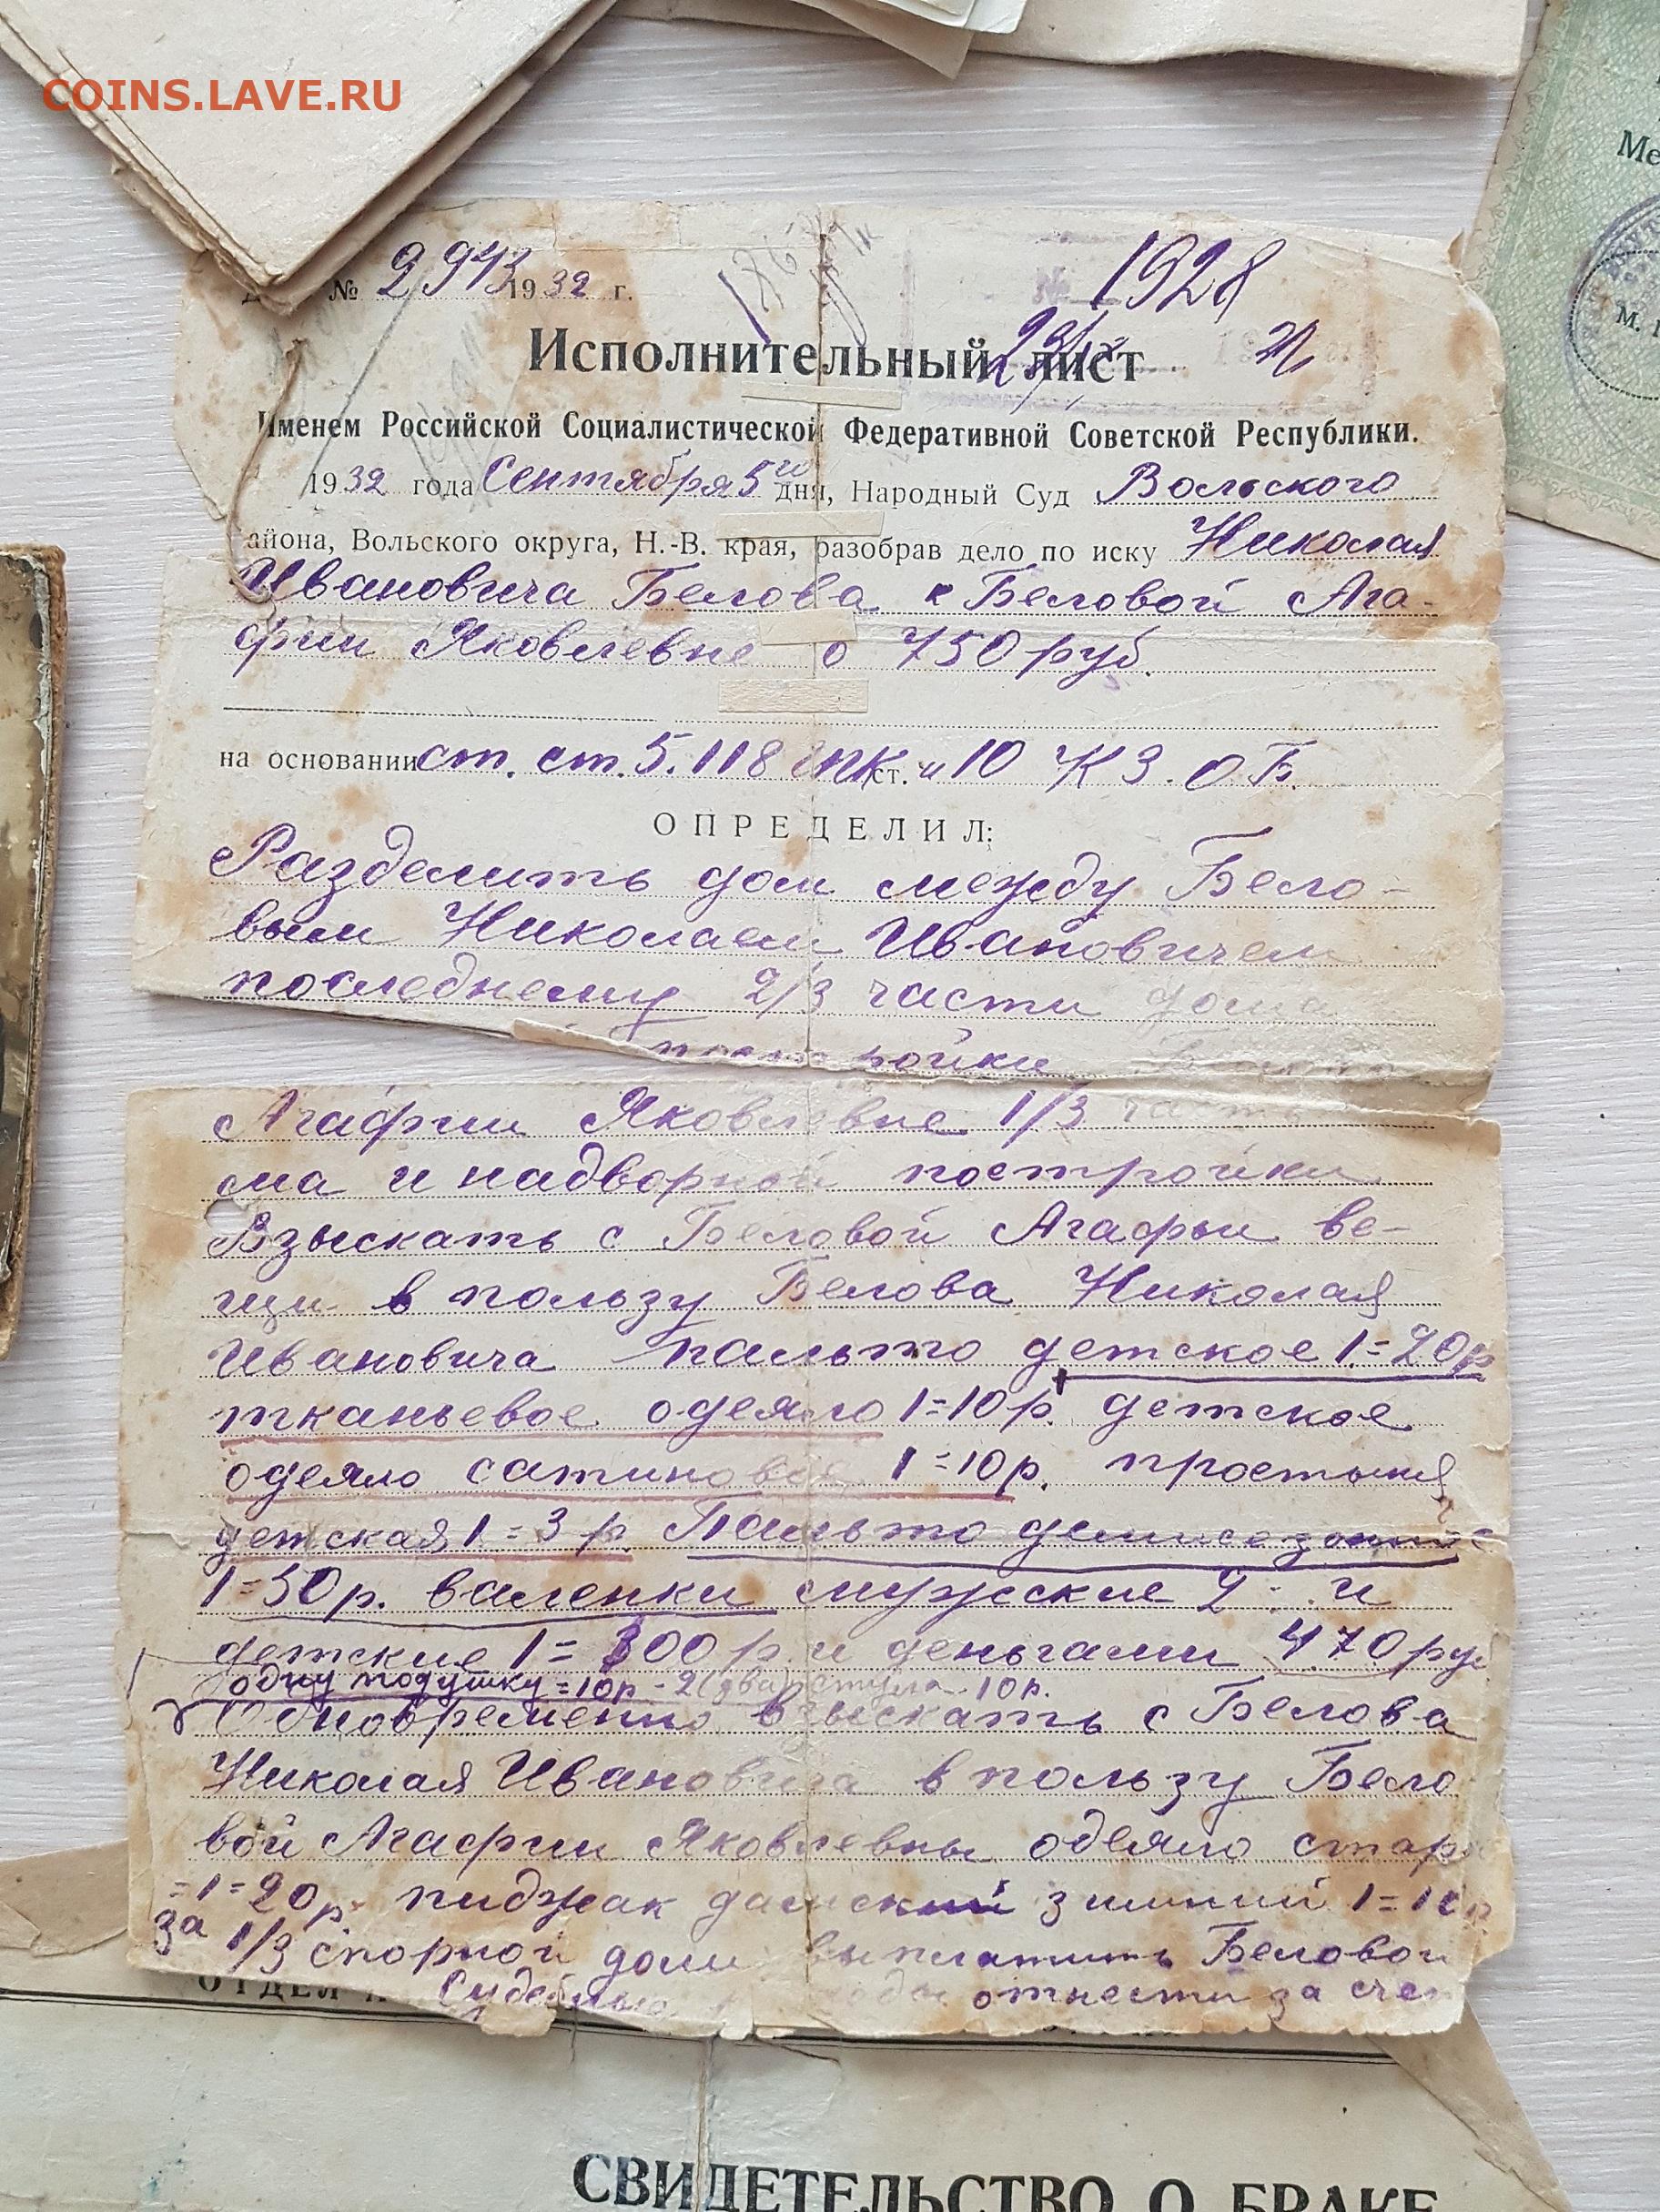 COINS.LAVE.RU
Ме
М.
№ 2943 1932 г.
1928
Исполнительный лист
Именем Российской Социалистической Федеративной Советской Республики.
1932 года Сентября 5го дня, Народный Суд Вольского
айона, Вольского округа, Н.-В. края, разобрав дело по иску Николая
Ивановича Белова к Беловой Ага-
фии Яковлевне о 750 руб.
на основании ст. ст. 5. 118 ГПК ст. и 10 К З. О. Б.
ОПРЕДЕЛИЛ:
Разделить дом между Бело-
вым Николаем Ивановичем
последнему 2/3 части дома
постройки
Агафии Яковлевне 1/3 часть
ма и надворной постройки
Взыскать с Беловой Агафьи ве-
щи в пользу Белова Николая
Ивановича пальто детское 1=20р
тканьевое одеяло 1=10р. детское
одеяло сатиновое 1=10р. простыня
детская 1=3р. Пальто демисезонное
1=50р. валенки мужские 2 и
детские 1= 100 р и деньгами 470 руб
одну подушку=10р - 2 (два) стула 10р.
Одновременно взыскать с Белова
Николая Ивановича в пользу Бело
вой Агафии Яковлевны одеяло стар
=1=20р. пиджак дамский зимний
за 1/3 спорной доли выплатить Беловой
Судебные отнести за счет
ОТДЕЛ
СВИДЕТЕЛЬСТВО О БРАКЕ